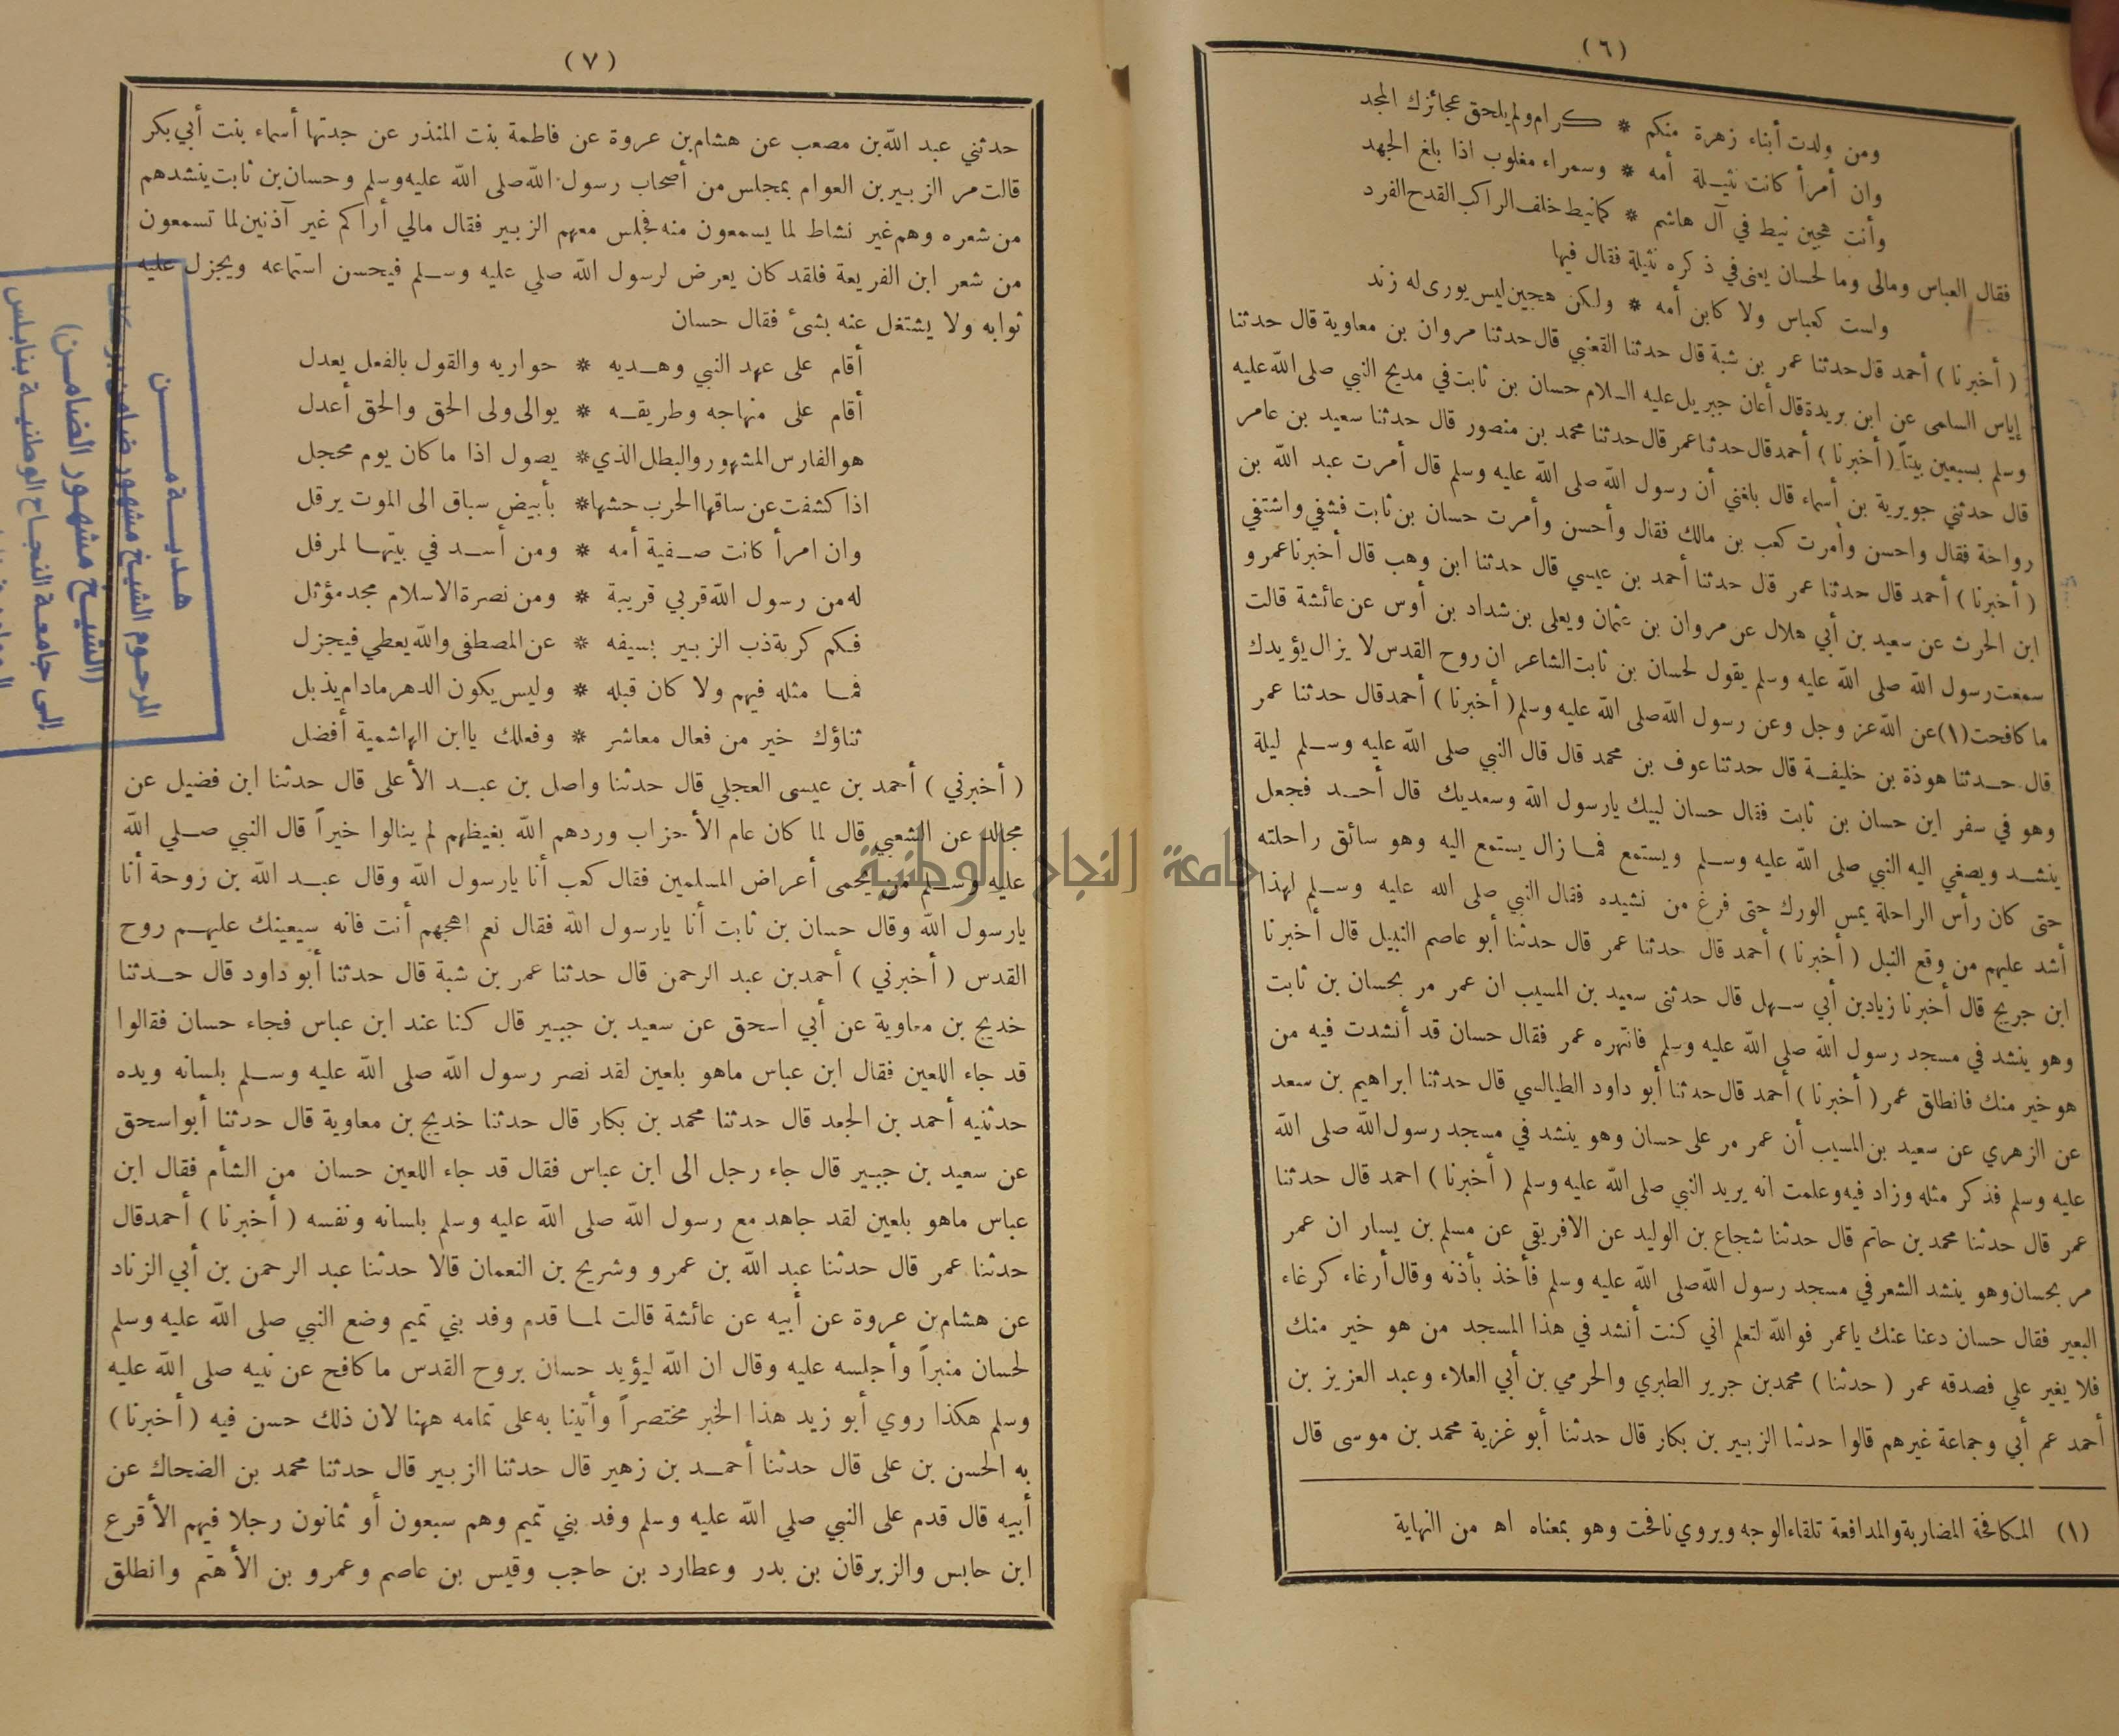 (٦)
ومن ولدت أبناء زهرة منكم * كرام ولم يلحق عجائزك المجد
وان أمرأ كانت نثيـلة أمه * وسمراء مغلوب اذا بلغ الجهد
وأنت هجين نيط في آل هاشم * كمانيط خلف الراكب القدح الفرد
فقال العباس ومالى وما لحسان يعنى في ذكره نثيلة فقال فيها
ولست كعباس ولا كابن أمه * ولكن هجين ليس يورى له زند
(أخبرنا) أحمد قال حدثنا عمر بن شبة قال حدثنا القعنبي قال حدثنا مروان بن معاوية قال حدثنا
إياس السلمى عن ابن بريدة قال أعان جبريل عليه السلام حسان بن ثابت في مديح النبي صلى الله عليه
وسلم بسبعين بيتاً (أخبرنا) أحمد قال حدثنا عمر قال حدثنا محمد بن منصور قال حدثنا سعيد بن عامر
قال حدثني جويرية بن أسماء قال بلغني أن رسول الله صلى الله عليه وسلم قال أمرت عبد الله بن
رواحة فقال واحسن وأمرت كعب بن مالك فقال وأحسن وأمرت حسان بن ثابت فشفي واشتفي
(أخبرنا) أحمد قال حدثنا عمر قال حدثنا أحمد بن عيسي قال حدثنا ابن وهب قال أخبرنا عمرو
ابن الحرث عن سعيد بن أبي هلال عن مروان بن عثمان ويعلى بن شداد بن أوس عن عائشة قالت
سمعت رسول الله صلى الله عليه وسلم يقول لحسان بن ثابت الشاعر ان روح القدس لا يزال يؤيدك
ما كافحت(١)عن الله عز وجل وعن رسول الله صلى الله عليه وسلم(أخبرنا) أحمد قال حدثنا عمر
قال حـدثنا هوذة بن خليفـة قال حدثنا عوف بن محمد قال قال النبي صلى الله عليه وسـلم ليلة
وهو في سفر اين حسان بن ثابت فقال حسان لبيك يارسول الله وسعديك قال أحـد فجعل
ينشـد ويصغي اليه النبي صلى الله عليه وسـلم ويستمع فمـا زال يستمع اليه وهو سائق راحلته
حتى كان رأس الراحلة يمس الورك حتى فرغ من نشيده فقال النبي صلى الله عليه وسـلم لهذا
أشد عليهم من وقع النبل (أخبرنا) أحمد قال حدثنا عمر قال حدثنا أبو عاصم النبيل قال أخبرنا
ابن جريج قال أخبرنا زياد بن أبي سـهل قال حدثنى سعيد بن المسيب ان عمر مر بحسان بن ثابت
وهو ينشد في مسجد رسول الله صلى الله عليه وسلم فانتهره عمر فقال حسان قد أنشدت فيه من
هو خير منك فانطلق عمر (أخبرنا) أحمد قال حدثنا أبو داود الطيالسي قال حدثنا ابراهيم بن سعد
عن الزهري عن سعيد بن المسيب أن عمر مر على حسان وهو ينشد في مسجد رسول الله صلى الله
عليه وسلم فذكر مثله وزاد فيه وعلمت انه يريد النبي صلى الله عليه وسلم (أخبرنا) احمد قال حدثنا
عمر قال حدثنا محمد بن حاتم قال حدثنا شجاع بن الوليد عن الافريقى عن مسلم بن يسار ان عمر
مر بحسان وهو ينشد الشعر في مسجد رسول الله صلى الله عليه وسلم فأخذ بأذنه وقال أرغاء كرغاء
البعير فقال حسان دعنا عنك ياعمر فوالله لتعلم اني كنت أنشد في هذا المسجد من هو خير منك
فلا يغير علي فصدقه عمر (حدثنا) محمد بن جرير الطبري والحرمي بن أبي العلاء وعبد العزيز بن
أحمد عم أبي وجماعة غيرهم قالوا حدثنا الزبير بن بكار قال حدثنا أبو غزية محمد بن موسى قال
(١) المكافحة المضاربة والمدافعة تلقاء الوجه ويروي نافحت وهو بمعناه اه من النهاية
(٧)
حدثني عبد الله بن مصعب عن هشام بن عروة عن فاطمة بنت المنذر عن جدتها أسماء بنت أبي بكر
قالت مر الزبير بن العوام بمجلس من أصحاب رسول الله صلى الله عليه وسلم وحسان بن ثابت ينشدهم
من شعره وهم غير نشاط لما يسمعون منه فجلس معهم الزبير فقال مالي أراكم غير آذنين لما تسمعون
من شعر ابن الفريعة فلقد كان يعرض لرسول الله صلي عليه وسـلم فيحسن استماعه ويجزل عليه
ثوابه ولا يشتغل عنه بشئ فقال حسان
أقام على عهد النبي وهـديه * حواريه والقول بالفعل يعدل
أقام على منهاجه وطريقـه * يوالى ولى الحق والحق أعدل
هو الفارس المشهور والبطل الذي* يصول اذا ما كان يوم محجل
اذا كشفت عن ساقها الحرب حشها* بأبيض سباق الى الموت يرقل
وان امرأ كانت صـفية أمه * ومن أسـد في بيتهـا لمرفل
له من رسول الله قربي قريبة * ومن نصرة الاسلام مجد مؤثل
فكم كربة ذب الزبير بسيفه * عن المصطفى والله يعطي فيجزل
فمـا مثله فيهم ولا كان قبله * وليس يكون الدهر مادام يذبل
ثناؤك خير من فعال معاشر * وفعلك ياابن الهاشمية أفضل
(أخبرني) أحمد بن عيسى العجلي قال حدثنا واصل بن عبـد الأعلى قال حدثنا ابن فضيل عن
مجالد عن الشعبي قال لما كان عام الأحزاب وردهم الله بغيظهم لم ينالوا خيراً قال النبي صـلي الله
عليه وسـلم من يحمى أعراض المسلمين فقال كعب أنا يارسول الله وقال عبـد الله بن زوحة أنا
يارسول الله وقال حسان بن ثابت أنا يارسول الله فقال نعم اهجهم أنت فانه سيعينك عليهـم روح
القدس (أخبرني) أحمد بن عبد الرحمن قال حدثنا عمر بن شبة قال حدثنا أبو داود قال حـدثنا
خديج بن معاوية عن أبي اسحق عن سعيد بن جبير قال كنا عند ابن عباس فجاء حسان فقالوا
قد جاء اللعين فقال ابن عباس ماهو بلعين لقد نصر رسول الله صلى الله عليه وسـلم بلسانه ويده
حدثنيه أحمد بن الجعد قال حدثنا محمد بن بكار قال حدثنا خديج بن معاوية قال حدثنا أبو اسحق
عن سعيد بن جبير قال جاء رجل الى ابن عباس فقال قد جاء اللعين حسان من الشأم فقال ابن
عباس ماهو بلعين لقد جاهد مع رسول الله صلى الله عليه وسلم بلسانه ونفسه (أخبرنا) أحمد قال
حدثنا عمر قال حدثنا عبد الله بن عمرو وشريح بن النعمان قالا حدثنا عبد الرحمن بن أبي الزناد
عن هشام بن عروة عن أبيه عن عائشة قالت لمـا قدم وفد بني تميم وضع النبي صلى الله عليه وسلم
لحسان منبراً وأجلسه عليه وقال ان الله ليؤيد حسان بروح القدس ما كافح عن نبيه صلى الله عليه
وسلم هكذا روي أبو زيد هذا الخبر مختصراً وأتينا به على تمامه ههنا لان ذلك حسن فيه (أخبرنا)
به الحسن بن على قال حدثنا أحمـد بن زهير قال حدثنا الزبير قال حدثنا محمد بن الضحاك عن
أبيه قال قدم على النبي صلي الله عليه وسلم وفد بني تميم وهم سبعون أو ثمانون رجلا فيهم الأقرع
ابن حابس والزبرقان بن بدر وعطارد بن حاجب وقيس بن عاصم وعمرو بن الأهتم وانطلق
هديـة مـن
المرحوم الشيخ مشهور ضامن بركات
(الشيخ مشهور الضامن)
إلى جامعة النجاح الوطنية بنابلس
جامعة النجاح الوطنية